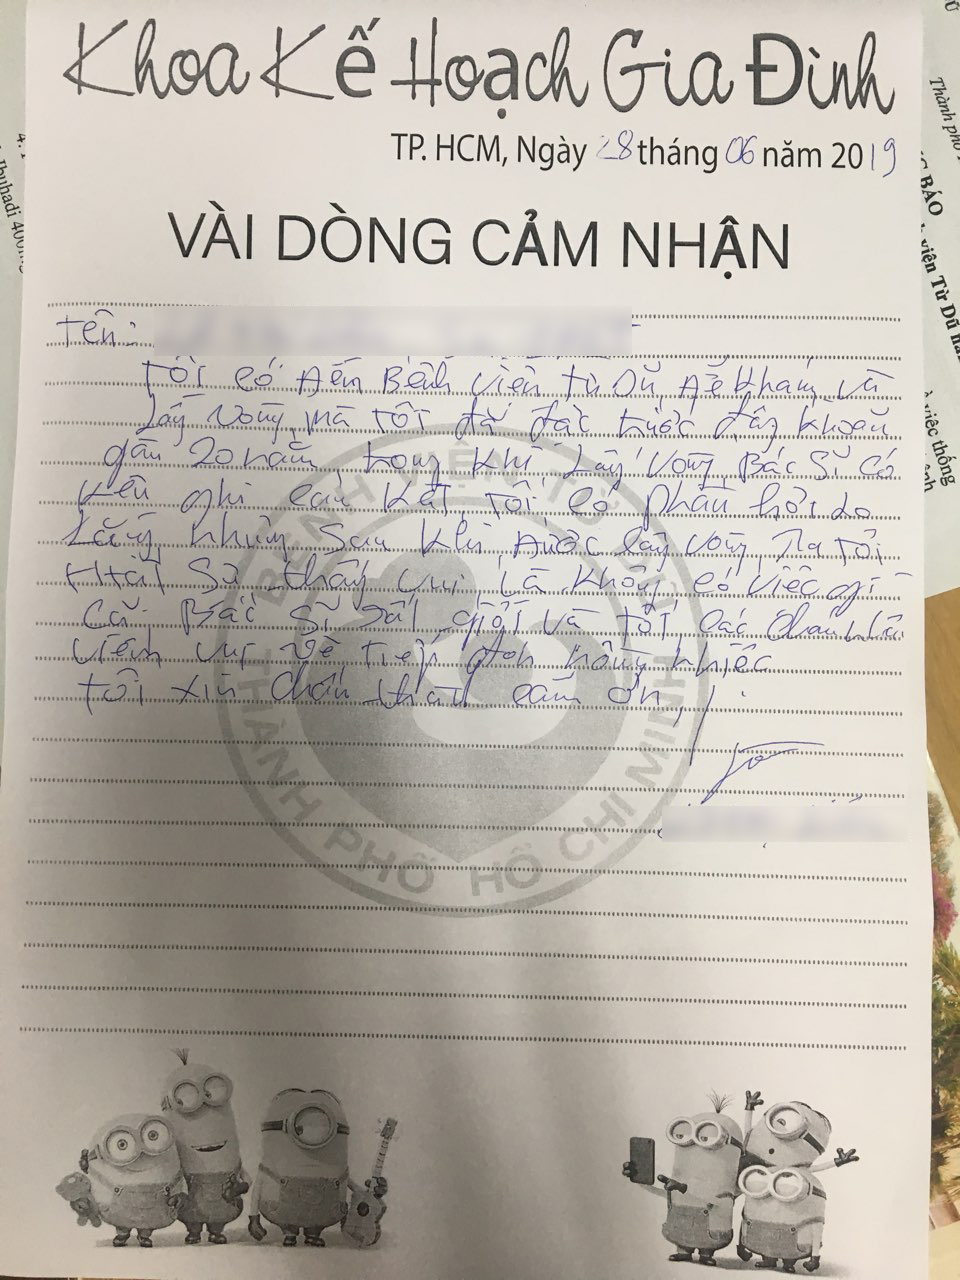 Khoa Kế Hoạch Gia Đình
TP. HCM, Ngày 28 tháng 06 năm 2019
VÀI DÒNG CẢM NHẬN
Tên:
Tôi có đến Bệnh viện Từ Dũ, để khám, và
lấy vòng, mà tôi đã đặc trước đây khoản
gần 20 năm, trong khi lấy vòng, Bác Sĩ có
Kên nghị cái kết, tôi có phần hơi lo
lắng nhưng sau khi được lấy vòng, ra tôi
thật sự thấy vui là không có việc gì
cả. Bác sĩ rất giỏi và tốt các
viên vui vẻ tiếp đón nồng nhiệc
tôi xin chân thật cảm ơn,
BỆNH VIỆN TỪ DŨ
THÀNH PHỐ HỒ CHÍ MINH
Thành phố
BÁO
viện Từ Dũ
việc thông